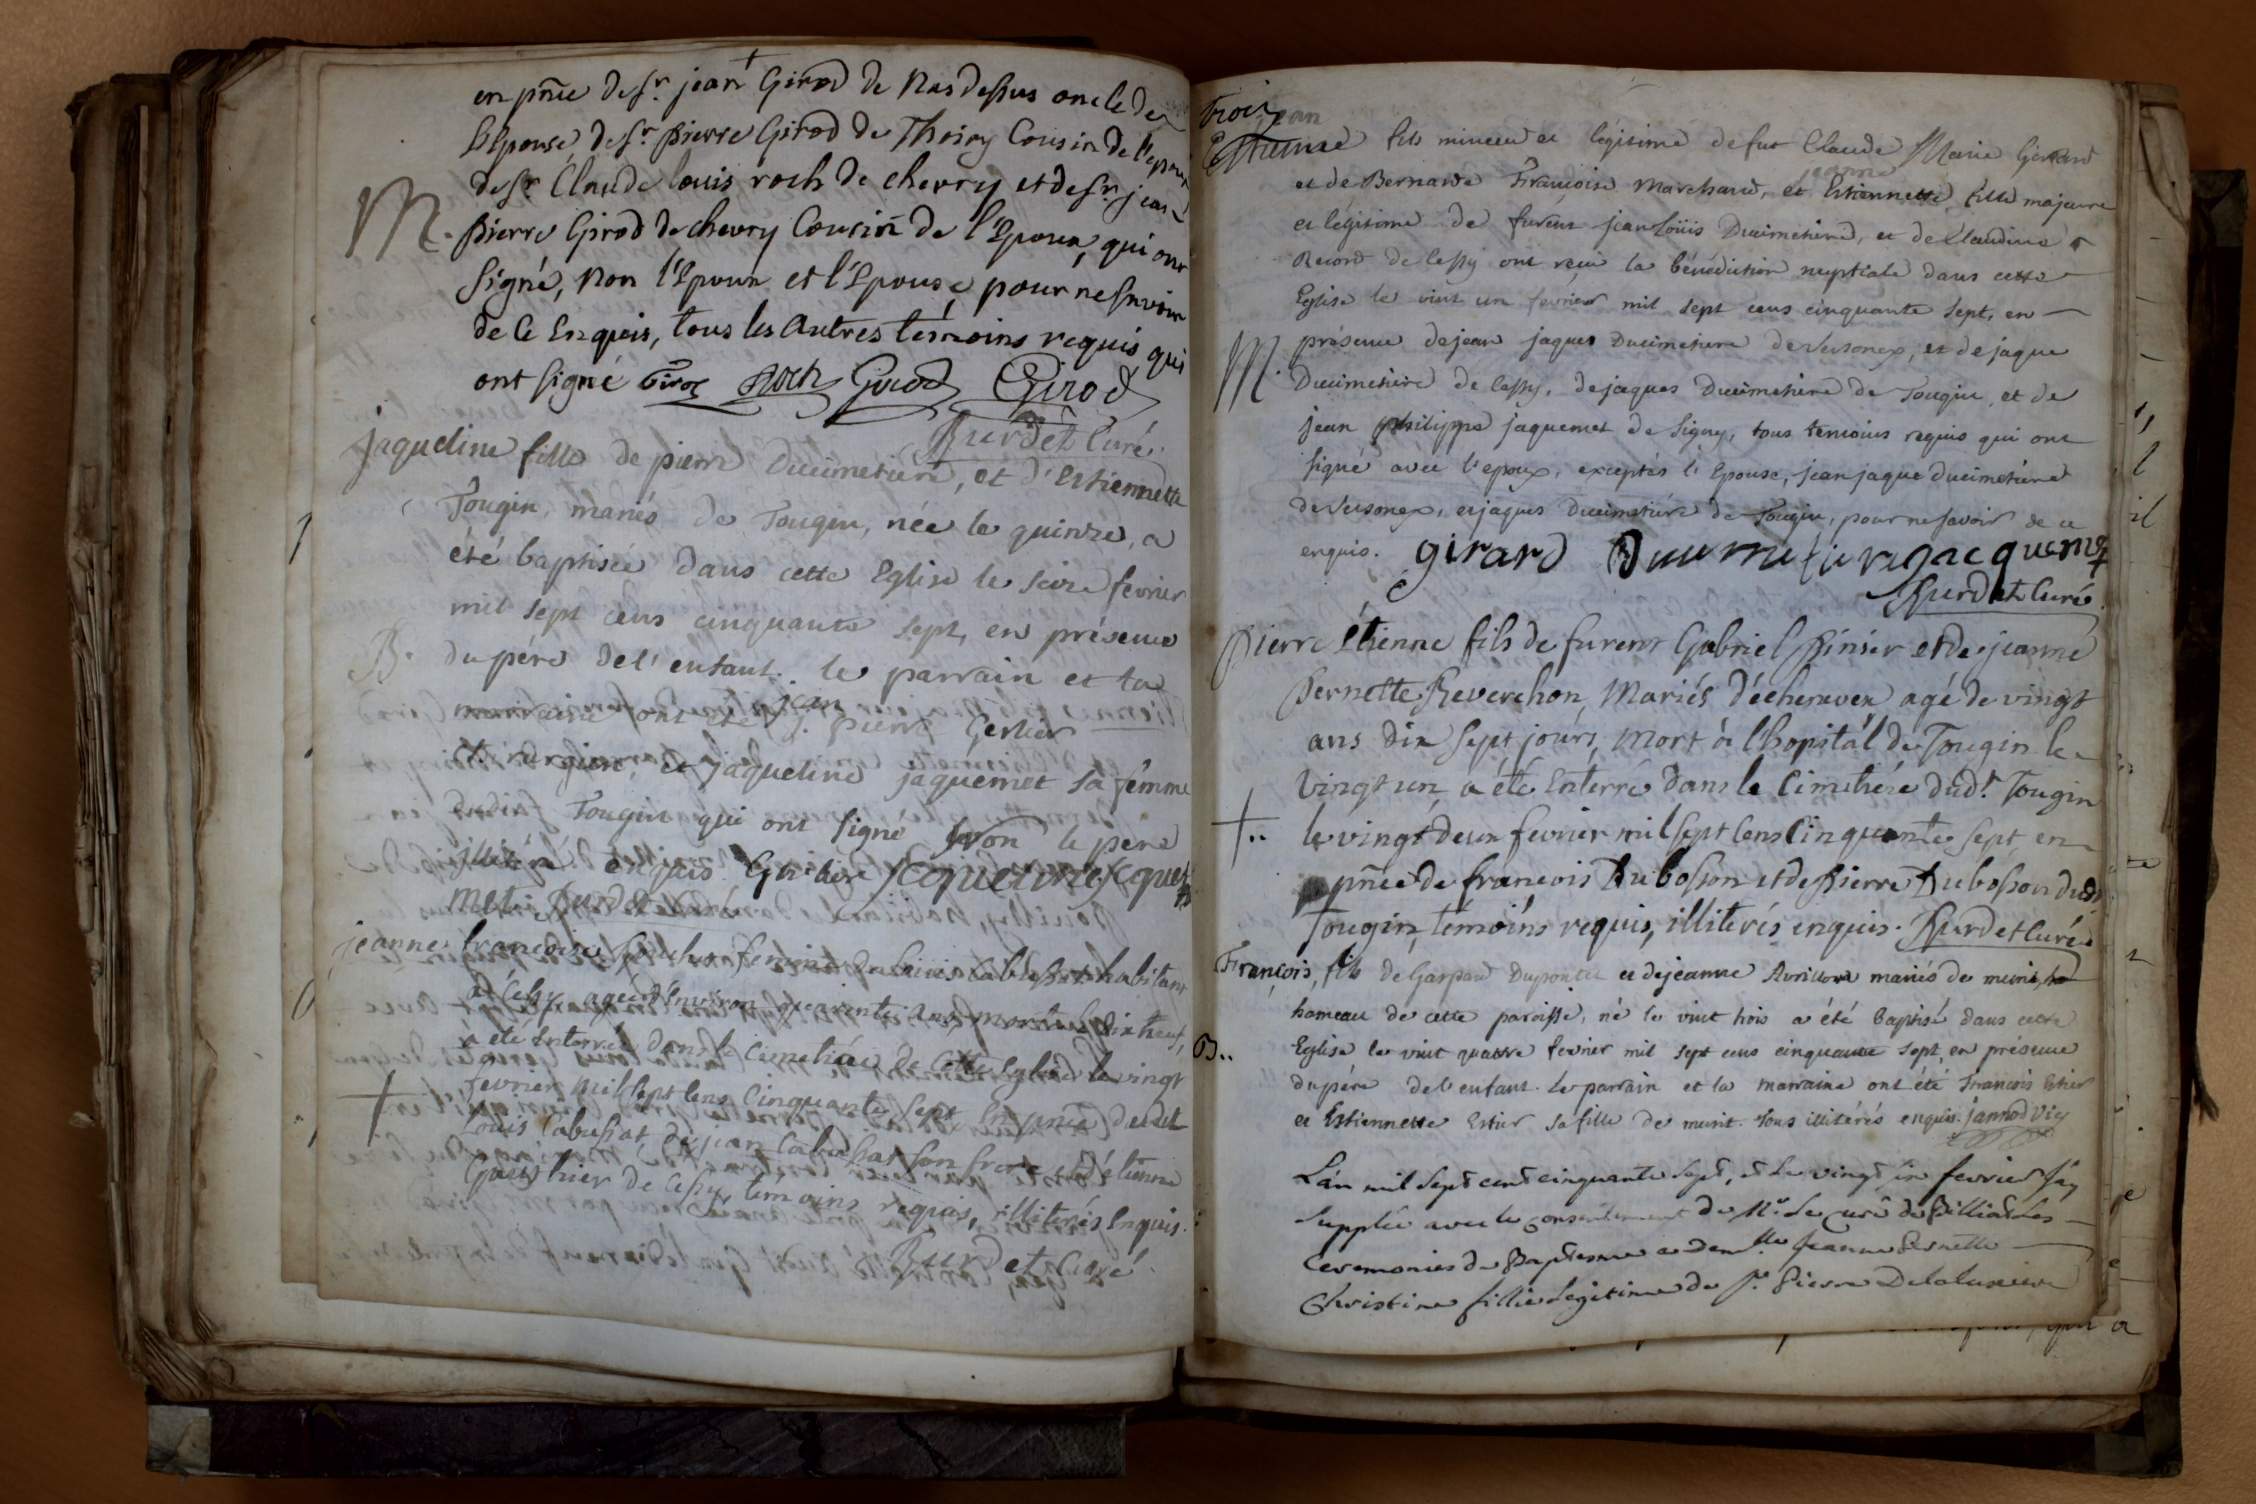 en pñce de sr. jean Girod de Nas dessus oncle de
l'Epouse, de sr. Pierre Girod de Thoiry Cousin de l'epoux
de sr. Claude louis roch de chevry et de sr. jean
M. pierre Girod de chevry Cousin de l'Epoux, qui ont
signé, non l'Epoux et l'Epouse, pour ne sçavoir
de ce Enquis, tous les autres témoins requis qui
ont signé Girod Roch Girod Girod
Burdet Curé.
jaqueline fille de pierre Ducimetiere, et d'Estiennette
Tougin, mariés de Tougin, née le quinze, a
été baptisée dans cette Eglise le seize fevrier
mil sept cens cinquante sept, en présence
B. du pére de l'enfant. le parrain et la
marraine ont été jean pierre
et jaqueline jaquemet sa fémme
dudit Tougin qui ont signé non le pere
illitéré enquis
Burdet
jeanne francoise femme de Louis Cabussat habitant
à Cessy, agée d'Environ quarente ans, morte le dix neuf,
a été Enterrée dans le Cimetiére de Cette Eglise le vingt
fevrier mil sept Cens Cinquante Sept En pñce dudit
Louis Cabussat de jean Cabussat son frere et d'étienne
Gauthier de Cessy témoins requis, illiterés Enquis.
Burdet Curé
Trois
jean
Estienne fils mineur et légitime de fut Claude Marie Girard
et de Bernarde Françoise Marchand, et jeanne Estiennette fille majeure
et légitime de furent jean Loüis Ducimetiére, et de Claudine
Record de Cessy ont reçu la bénédiction nuptiale dans cette
Eglise le vint un fevrier mil sept cens cinquante sept, en
M. présence de jean jaques Ducimetiere de Versonex, et de jaque
Ducimetiére de Cessy, de jaques Ducimetiére de Tougin, et de
jean philippe jaquemet de Signy, tous temoins requis qui ont
signé avec l'epoux, exceptés l'Epouse, jean jaque Ducimetiére
de Versonex, et jaques Ducimetiére de Tougin, pour ne savoir de ce
enquis. girard Ducimetiere jacquemet
Burdet Curé.
Pierre Etienne fils de furent Gabriel et de jeanne
Pernette Reverchon, Mariés d'échenevex agé de vingt
ans dix sept jours, mort à l'hopital de Tougin le
vingt un, a été Enterré dans le Cimetiére dudt. Tougin
le vingt deux fevrier mil sept Cens Cinquante Sept, en
pñce de francois Dubosson et de Pierre Dubosson dudt
Tougin, témoins requis, illiterés enquis. Burdet Curé
François, fils de Gaspard et de jeanne mariés de
hameau de cette paroisse, né le vint trois a été baptisé dans cette
B.. Eglise le vint quatre fevrier mil sept cens cinquante sept, en présence
du pére de l'enfant. Le parrain et la marraine ont été François Estier
et Estiennette Estier sa fille de murit. tous illitérés enquis.
L'an mil sept cent cinquante sept, et le vingt six fevrier j'ay
supplée avec le consentement de Mr. Le Curé de Billiat les
Ceremonies du Baptesme a demlle Jeanne Pernette
Christine fillie Legitime de sr. Pierre